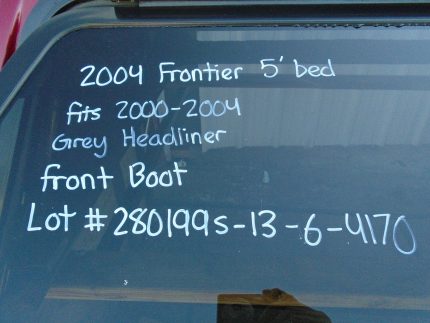 2004 Frontier 5' bed
fits 2000-2004
Grey Headliner
front Boot
Lot # 280199s-13-6-4170